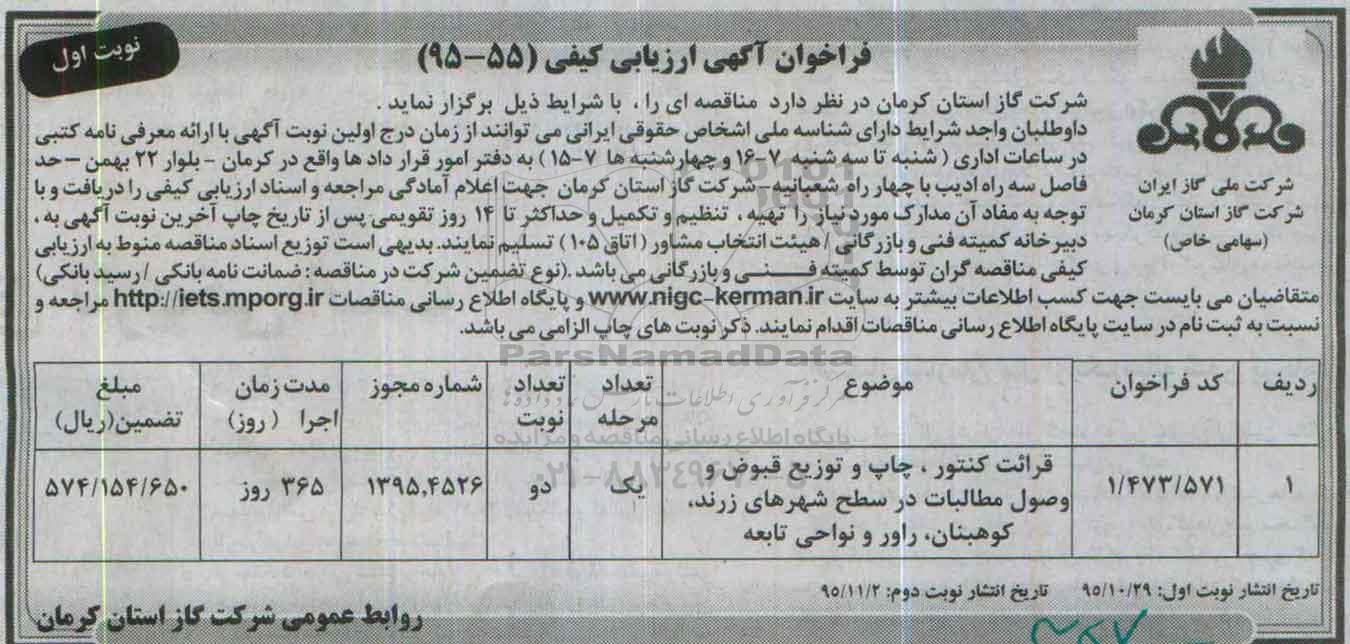 نوبت اول
فراخوان آگهی ارزیابی کیفی (۵۵-۹۵)
شرکت ملی گاز ایران
شرکت گاز استان کرمان
(سهامی خاص)
شرکت گاز استان کرمان در نظر دارد مناقصه ای را ، با شرایط ذیل برگزار نماید .
داوطلبان واجد شرایط دارای شناسه ملی اشخاص حقوقی ایرانی می توانند از زمان درج اولین نوبت آگهی با ارائه معرفی نامه کتبی
در ساعات اداری ( شنبه تا سه شنبه ۷-۱۶ و چهارشنبه ها ۷-۱۵ ) به دفتر امور قرار داد ها واقع در کرمان - بلوار ۲۲ بهمن – حد
فاصل سه راه ادیب با چهار راه شعبانیه- شرکت گاز استان کرمان جهت اعلام آمادگی مراجعه و اسناد ارزیابی کیفی را دریافت و با
توجه به مفاد آن مدارک مورد نیاز را تهیه ، تنظیم و تکمیل و حداکثر تا ۱۴ روز تقویمی پس از تاریخ چاپ آخرین نوبت آگهی به ،
دبیرخانه کمیته فنی و بازرگانی / هیئت انتخاب مشاور ( اتاق ۱۰۵ ) تسلیم نمایند. بدیهی است توزیع اسناد مناقصه منوط به ارزیابی
کیفی مناقصه گران توسط کمیته فـــنـــی و بازرگانی می باشد .(نوع تضمین شرکت در مناقصه : ضمانت نامه بانکی / رسید بانکی)
متقاضیان می بایست جهت کسب اطلاعات بیشتر به سایت www.nigc-kerman.ir و پایگاه اطلاع رسانی مناقصات http://iets.mporg.ir مراجعه و
نسبت به ثبت نام در سایت پایگاه اطلاع رسانی مناقصات اقدام نمایند. ذکر نوبت های چاپ الزامی می باشد.
ParsNamadData
پایگاه اطلاع رسانی مناقصه و مزایده
ردیف کد فراخوان موضوع تعداد مرحله تعداد نوبت شماره مجوز مدت زمان اجرا (روز) مبلغ تضمین(ریال)
۱ ۱/۴۷۳/۵۷۱ قرائت کنتور ، چاپ و توزیع قبوض و یک دو ۱۳۹۵,۴۵۲۶ ۳۶۵ روز ۵۷۴/۱۵۴/۶۵۰
وصول مطالبات در سطح شهرهای زرند،
کوهبنان، راور و نواحی تابعه
تاریخ انتشار نوبت اول: ۹۵/۱۰/۲۹ تاریخ انتشار نوبت دوم: ۹۵/۱۱/۲
روابط عمومی شرکت گاز استان کرمان